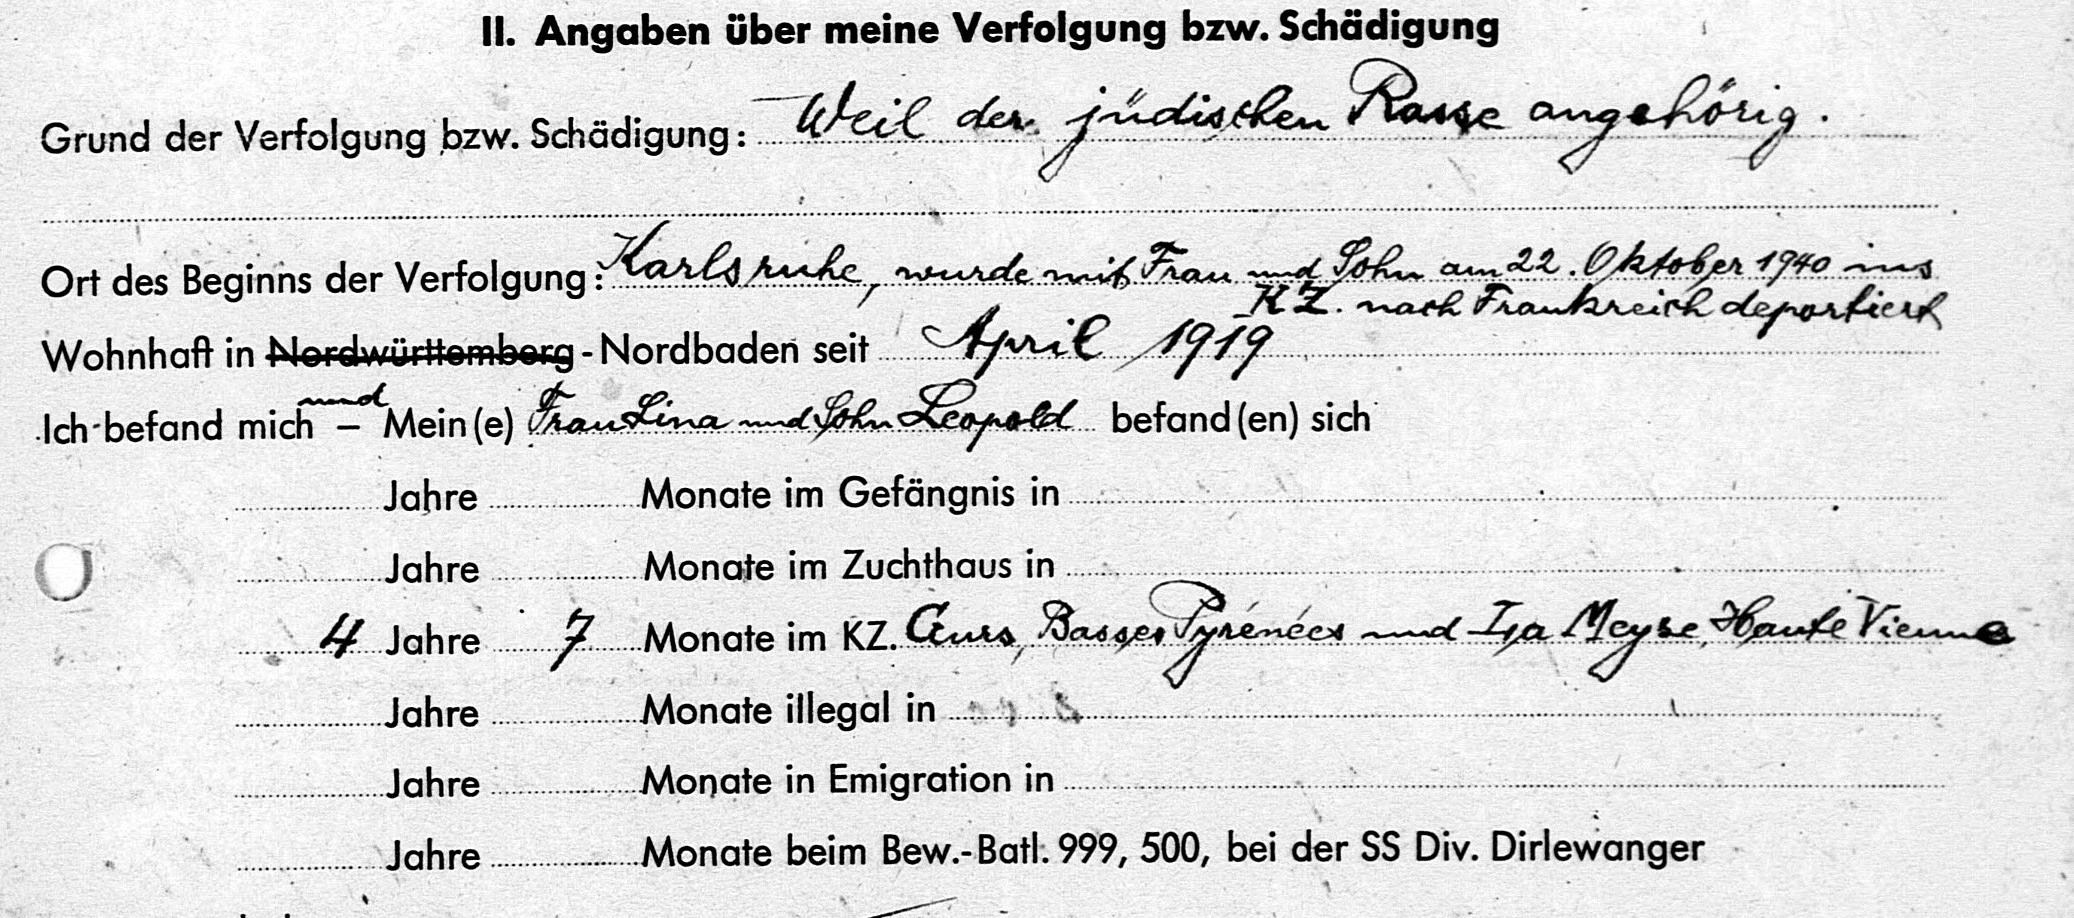 II. Angaben über meine Verfolgung bzw. Schädigung
Grund der Verfolgung bzw. Schädigung: Weil der jüdischen Rasse angehörig.
Ort des Beginns der Verfolgung: Karlsruhe, wurde mit Frau und Sohn am 22. Oktober 1940 ins
KZ. nach Frankreich deportiert
Wohnhaft in Nordwürttemberg - Nordbaden seit April 1919
und
Ich befand mich – Mein(e) Frau Lina und Sohn Leopold befand(en) sich
Jahre Monate im Gefängnis in
Jahre Monate im Zuchthaus in
4 Jahre 7 Monate im KZ. Gurs, Basses Pyrénées und Meyze, Haute Vienne
Jahre Monate illegal in
Jahre Monate in Emigration in
Jahre Monate beim Bew.-Batl. 999, 500, bei der SS Div. Dirlewanger